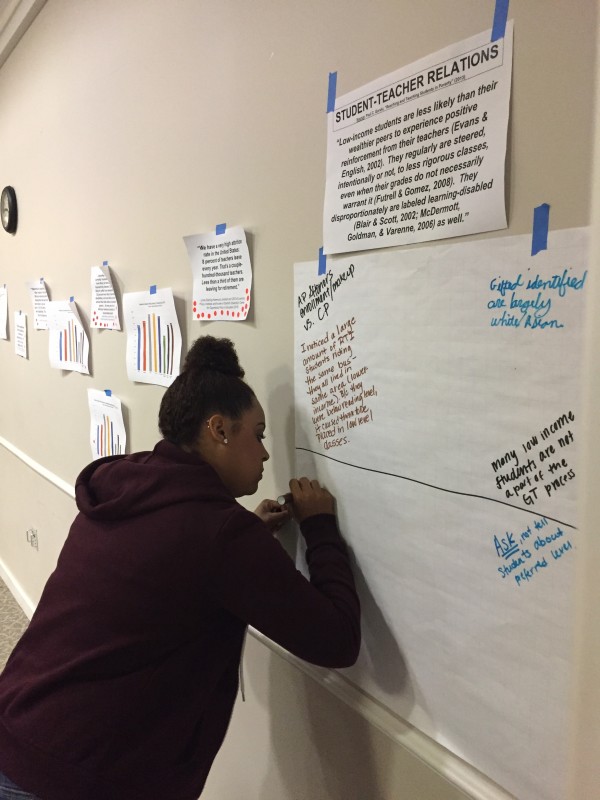 STUDENT-TEACHER RELATIONS
"Low-income students are less likely than their
wealthier peers to experience positive
reinforcement from their teachers (Evans &
English, 2002). They regularly are steered,
intentionally or not, to less rigorous classes,
even when their grades do not necessarily
warrant it (Futrell & Gomez, 2008). They
disproportionately are labeled learning-disabled
(Blair & Scott, 2002; McDermott,
Goldman, & Varenne, 2006) as well."
"We have a very high attrition
rate in the United States.
8 percent of teachers leave
every year. That's a couple-
hundred-thousand teachers.
Less than a third of them are
leaving for retirement."
AP Honors
enrollment/makeup
vs. CP
I noticed a large
amount of RTI
students riding
the same bus -
they all lived in
same area (lower
income). B/c they
were below reading level,
it caused them to be
placed in low level
classes.
Gifted identified
are largely
white/Asian.
many low income
students are not
a part of the
GT process
Ask, not tell
students about
preferred level.